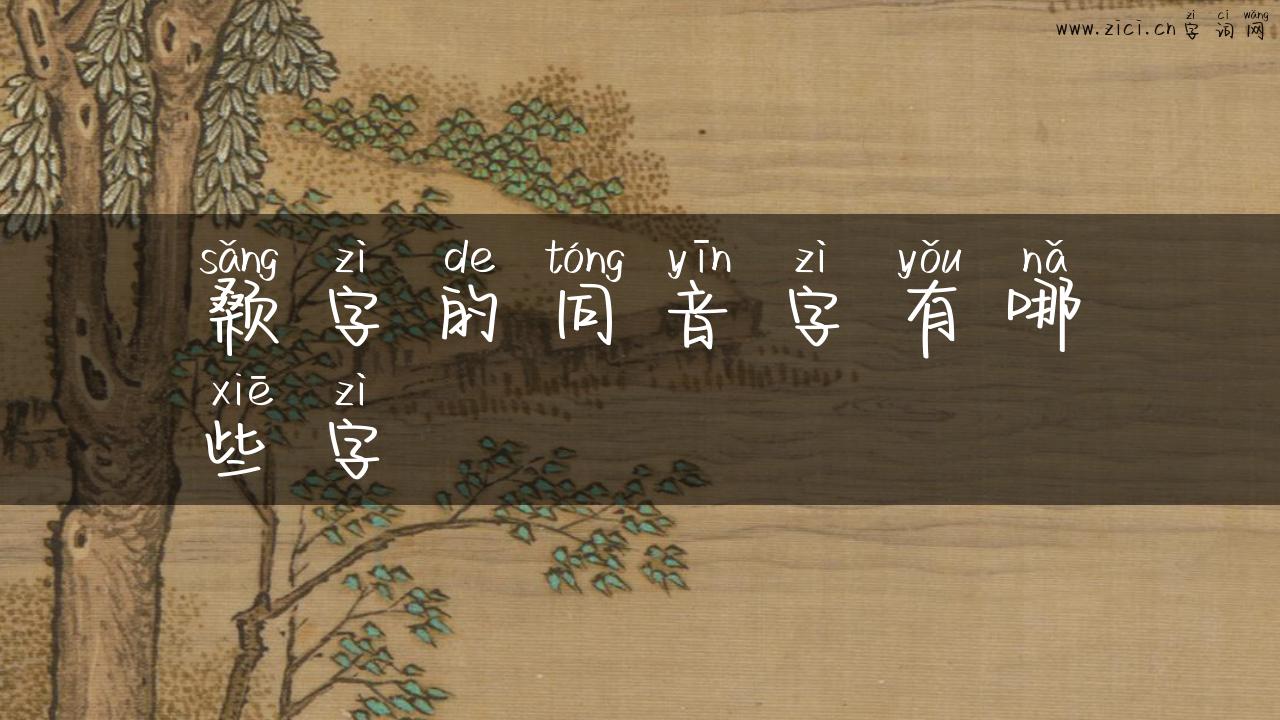 zì cí wǎng
www.zici.cn 字词网
sǎng zì de tóng yīn zì yǒu nǎ
颡字的同音字有哪
xiē zì
些字